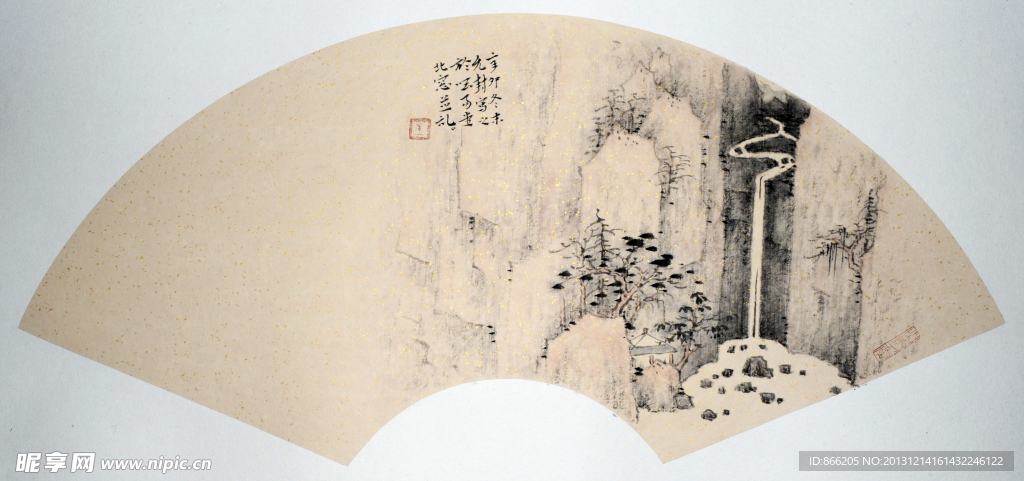 辛卯冬末
允封写之
於
北窓並記
昵享网 www.nipic.cn
ID:866205 NO:20131214161432246122